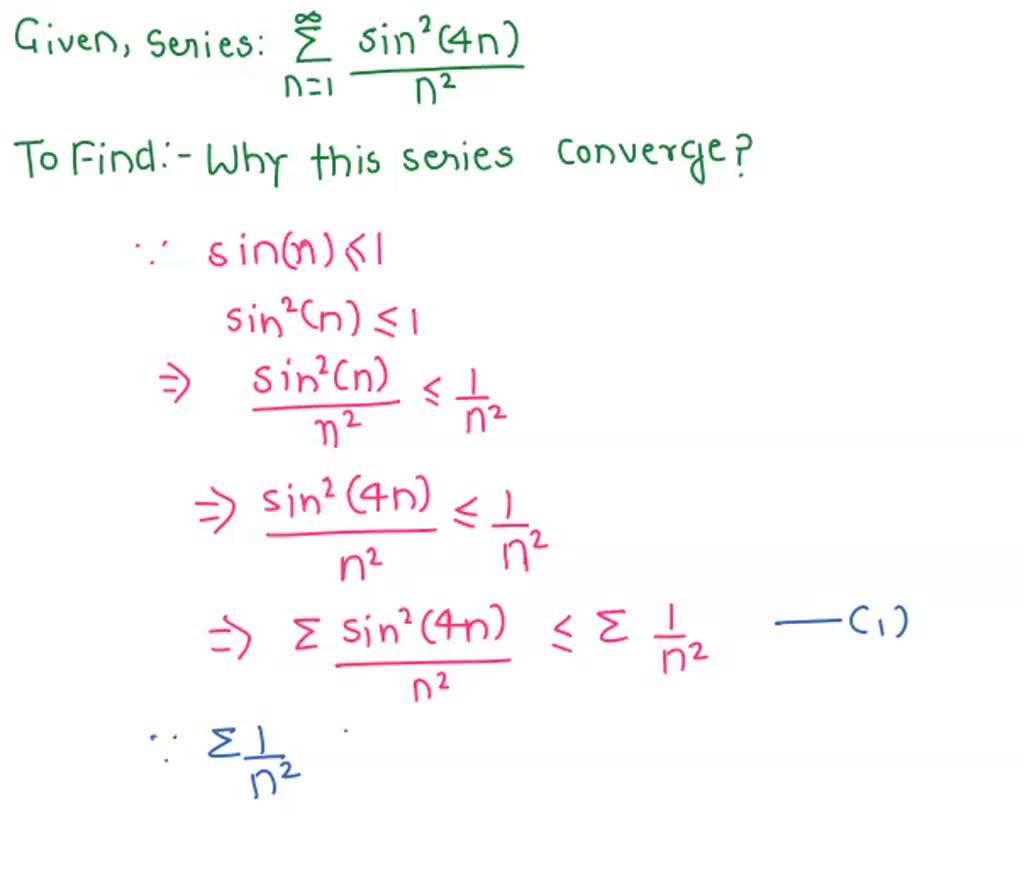 Given, Series: ∞ Σ n=1 sin²(4n) / n²
To Find:- Why this series converge?
∵ sin(n) ≤ 1
sin²(n) ≤ 1
⇒ sin²(n) / n² ≤ 1 / n²
⇒ sin²(4n) / n² ≤ 1 / n²
⇒ Σ sin²(4n) / n² ≤ Σ 1 / n² —(1)
∵ Σ 1 / n²